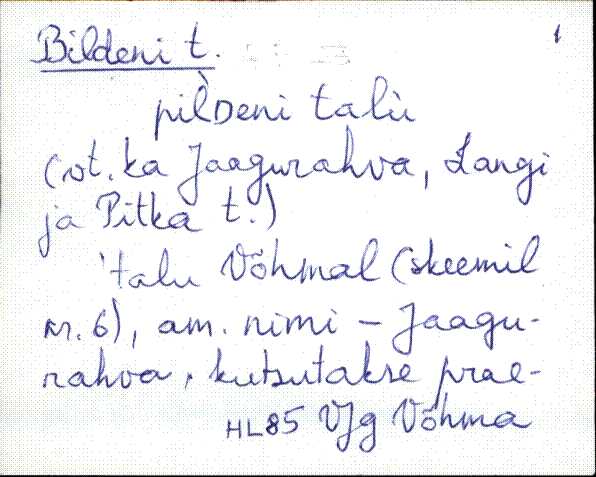 Bildeni t. 1
pil̀Deni talù
(vt. ka Jaagurahva, Langi
ja Pitka t.)
'talu Võhmal (skeemil
nr. 6), am. nimi – Jaagu-
rahva, kutsutakse prae-
HL85 VJg Võhma